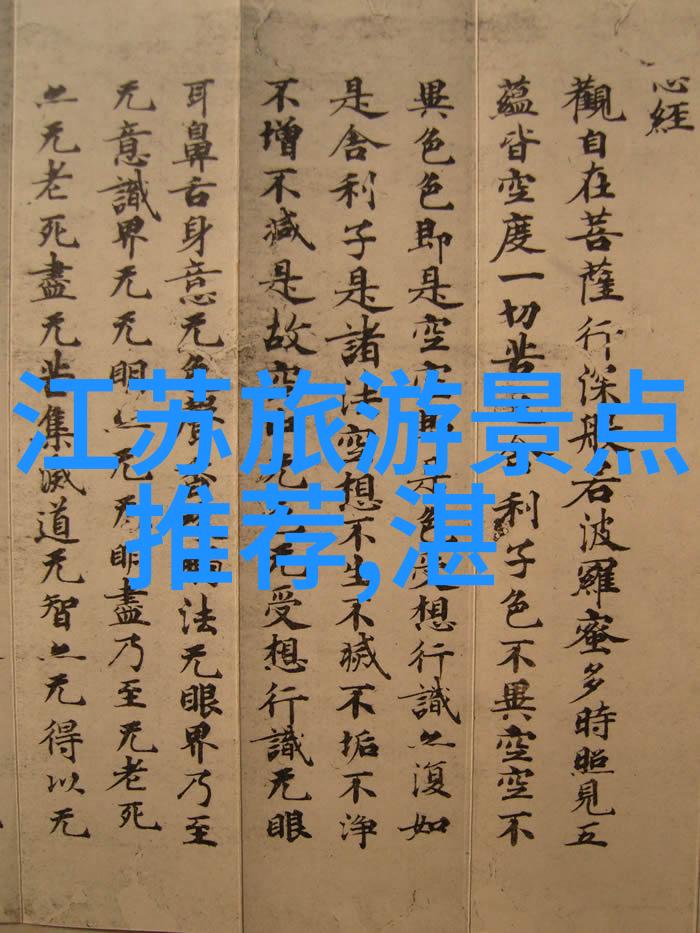 心経
觀自在菩薩行深般若波羅蜜多時照見五
蘊皆空度一切苦利子色不異空空不
異色色即是空空即是色受想行識亦復如
是舍利子是諸法空想不生不滅不垢不淨
不增不減是故空中无无受想行識无眼
耳鼻舌身意无色聲香法无眼界乃至
无意識界无无明亦无无明盡乃至无老死
亦无老死盡无苦集滅道无智亦无得以无
江苏旅游景点
推荐,湛